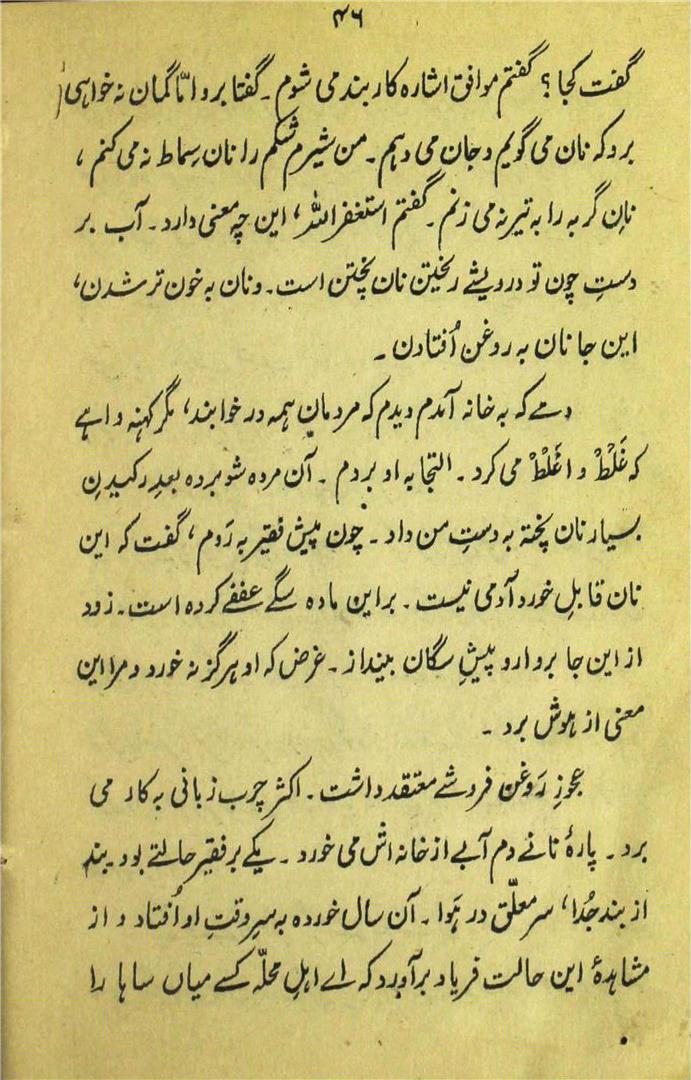 ۴۶
گفت کجا؟ گفتم موافق اشاره کار بند می شوم۔ گفتا برو امّا گمان نہ خواہی
برد کہ نان می گویم و جان می دہم۔ من شیرم شکم را نان سِماط نہ می کنم،
نانِ گربہ را بہ تیر نہ می زنم۔ گفتم استغفراللہ، این چہ معنی دارد۔ آب بر
دستِ چون تو درویشے ریختن نان پختن است۔ و نان بہ خون تر شدن،
این جا نان بہ روغن اُفتادن۔
دمے کہ بہ خانہ آمدم دیدم کہ مردمان ہمہ در خوابند، مگر کہنہ واہے
کہ غَلْطْ و اغَلْطْ می کرد۔ التجا بہ او بردم۔ آن مردہ شو بردہ بعدِ رکیدنِ
بسیار نان پختہ بہ دستِ من داد۔ چون پیش فقیر بہ رَوم، گفت کہ این
نان قابلِ خوردِ آدمی نیست۔ بر این مادہ سگے عففے کردہ است۔ زود
از این جا بردار و پیشِ سگان بینداز۔ غرض کہ او ہرگز نہ خورد و مرا این
معنی از ہوش برد۔
عجوزِ رَوغن فروشے معتقد داشت۔ اکثر چرب زبانی بہ کار می
برد۔ پارۂ نانے دم آبے از خانہ اش می خورد۔ یکے بر فقیر حالتے بود۔ بند
از بند جُدا، سر معلّق در ہَوا۔ آن سال خوردہ بہ سر وقتِ او اُفتاد و از
مشاہدۂ این حالت فریاد برآورد کہ اے اہلِ محلّہ کسے میاں ساہا را